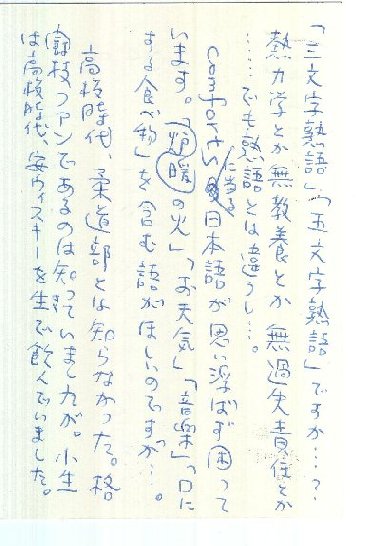 「三文字熟語」「五文字熟語」ですか…?
熱力学とか無教養とか無過失責任とか
……でも熟語とは違うし…。
に当る日本語が思い浮ばず困って
います。「炉暖の火」「お天気」「音楽」「口に
する食べ物」を含む語がほしいのですが…。
高校時代、柔道部とは知らなかった。格
闘技ファンであるのは知っていましたが。小生
は高校時代、安ウィスキーを生で飲んでいました。